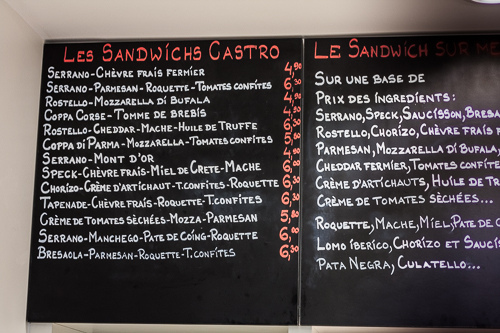 LES SANDWICHS CASTRO
SERRANO-CHÈVRE FRAIS FERMIER 4,90
SERRANO-PARMESAN-ROQUETTE-TOMATES CONFITES 6,30
ROSTELLO-MOZZARELLA DI BUFALA 4,90
COPPA CORSE-TOMME DE BREBIS 4,90
ROSTELLO-CHEDDAR-MACHE-HUILE DE TRUFFE 6,30
COPPA DI PARMA-MOZZARELLA-TOMATES CONFITES 5,80
SERRANO-MONT D'OR 4,90
SPECK-CHÈVRE FRAIS-MIEL DE CRETE-MACHE 6,00
CHORIZO-CRÈME D'ARTICHAUT-T.CONFITES-ROQUETTE 6,30
TAPENADE-CHÈVRE FRAIS-ROQUETTE-T.CONFITES 6,30
CRÈME DE TOMATES SÈCHÉES-MOZZA-PARMESAN 5,80
SERRANO-MANCHEGO-PATE DE COING-ROQUETTE 6,00
BRESAOLA-PARMESAN-ROQUETTE-T.CONFITES 6,30
LE SANDWICH SUR ME
SUR UNE BASE DE
PRIX DES INGREDIENTS:
SERRANO,SPECK,SAUCISSON,BRESA
ROSTELLO,CHORIZO,CHÈVRE FRAIS
PARMESAN,MOZZARELLA DI BUFALA,
CHEDDAR FERMIER,TOMATES CONFITE
CRÈME D'ARTICHAUTS,HUILE DE TR
CRÈME DE TOMATES SÈCHÉES...
ROQUETTE,MACHE,MIEL,PATE DE C
LOMO IBERICO,CHORIZO ET SAUCIS
PATA NEGRA,CULATELLO...